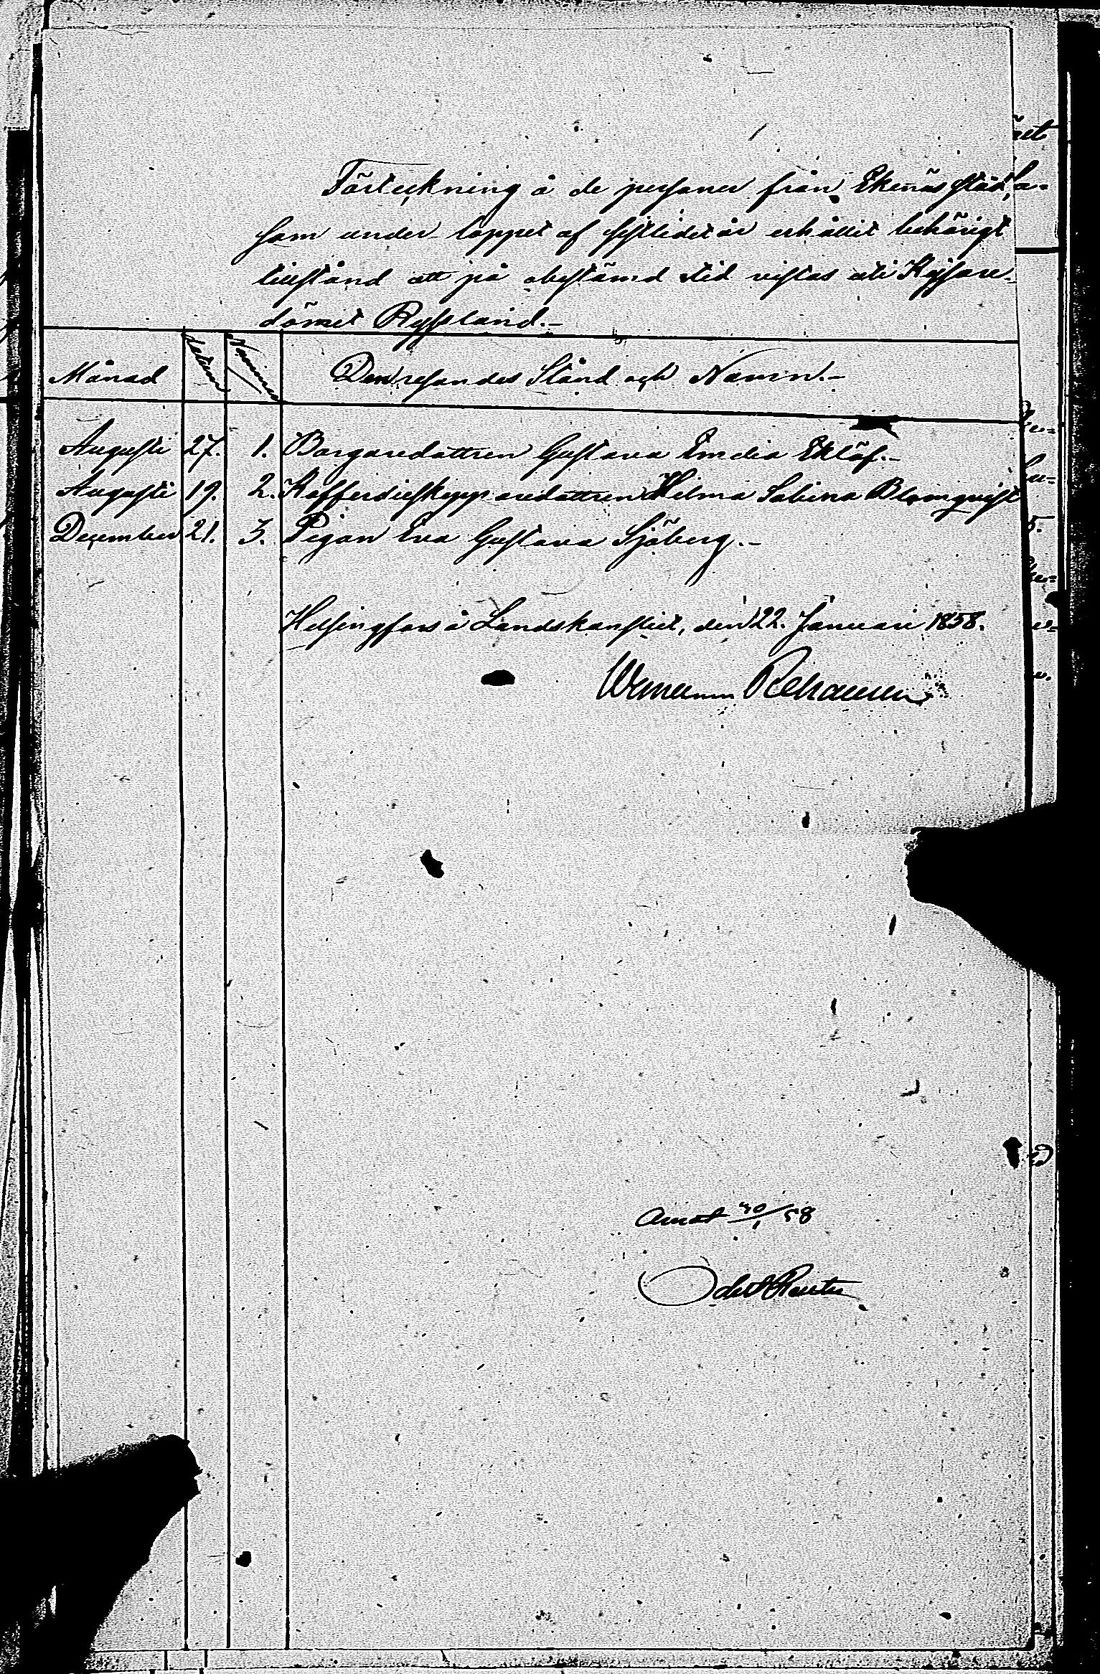 Förteckning å de personer från Ekenäs stad,
som under loppet af sistlidet år erhållit behörigt
tillstånd att på obestämd tid vistas uti Kejsare-
dömet Ryssland.-
Månad datum Nummer Den resandes Stånd och Namn.-
Augusti 27. 1. Borgaredottren Gustava Emelia Eklöf.-
Augusti 19. 2. Kofferdieskepparedottren Hilma Sabina Blomqvist
December 21. 3. Pigan Eva Gustava Sjöberg.-
Helsingfors å Landskansliet, den 22. Januari 1858.
30/1 58